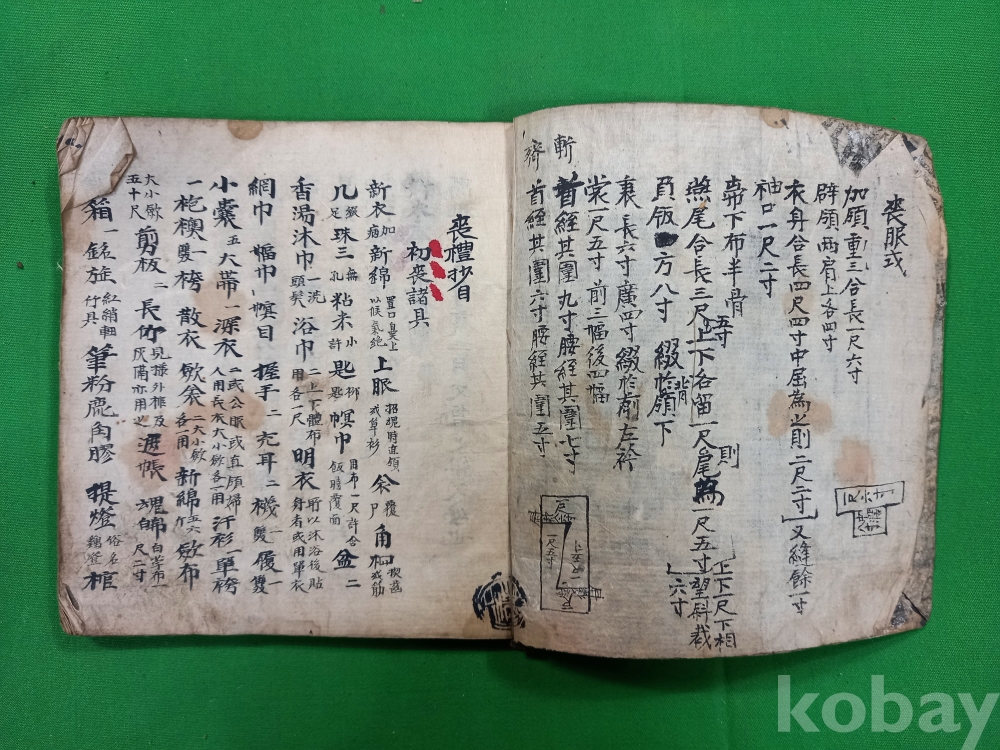 喪服式
加領重三合長一尺六寸
辟領两肩上各四寸
衣身合長四尺四寸中屈為之則二尺二寸又縫餘一寸
袖口一尺二寸
帶下布半骨五寸
燕尾合長三尺上下各留一尺尾則一尺五寸望斜裁
上下一尺下相
六寸
負版方八寸 綴於背領下
衰長六寸廣四寸綴於前左衿
裳一尺五寸前三幅後四幅
斬 首絰其圍九寸腰絰其圍七寸
齊 首絰其圍六寸腰絰其圍五寸
喪禮抄目
初喪諸具
新衣 加 新綿 置口鼻上以候氣絶 上服 招魂時直領或單衫 余 覆尸 角柶 楔齒
几 綴足 珠三 無孔 粘米 小許 匙 柳匙 幎巾 用布一尺許合飯時覆面 盆二
香湯沐巾 一洗頭髮 浴巾 二上下體布用各一尺 明衣 所以沐浴後貼身者或用單衣
網巾 幅巾 幎目 握手二 充耳二 襪一雙 履一雙
小囊五 大帶一 深衣 一或公服或直領 汗衫一 單袴
一袍襖一雙 袴 散衣 斂衾 二大小斂各一用 新綿 斂布
大小斂五十尺 剪板二 長竹 遮帳 魂帛 白苧布一尺二寸
箱一 銘旌 紅綃軸竹具 筆 粉 鹿角膠 提燈 俗名 棺
kobay